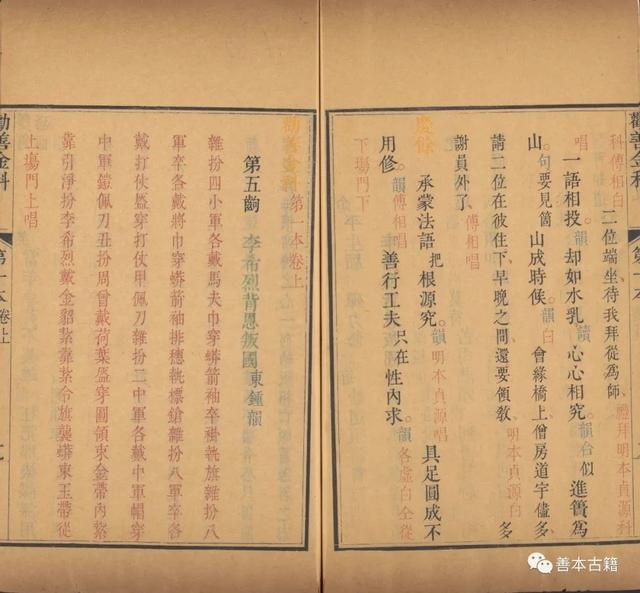 勸善金科 第一本
科傅相白 二位端坐、待我拜從為師。禮拜明本貞源科
唱 一語相投韻 却如水乳讀 心心相究。韻 台似 進簣為
山。句 要見箇 山成時候。韻 白 會緣橋上僧房道宇儘多
請二位在彼住下、早晚之間還要領教、明本貞源白 多
謝員外了、傅相唱
慶餘 承蒙法語 把根源究。韻 明本貞源唱 具足圓成不
用修。韻 傅相唱 善行工夫只在性內求。韻 各虛白仝從
下場門下
勸善金科 第一本卷上
第五齣 李希烈背恩叛國 東鍾韻
雜扮四小軍各戴馬夫巾穿蟒箭袖卒褂執旗雜扮八
軍卒各戴將巾穿蟒箭袖排穗執標鎗雜扮八軍卒各
戴打仗盔穿打仗甲佩刀雜扮二中軍各戴中軍帽穿
中軍鎧佩刀丑扮周曾戴荷葉盔穿圓領束金帶內紮
靠引淨扮李希烈戴金貂紮靠紮令旗襲蟒束玉帶從
上場門上唱
勸善金科 第一本卷上
善本古籍